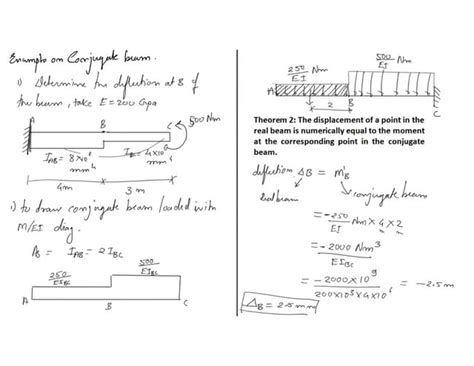 Example on Conjugate beam.
1) Determine the deflection at B of
the beam, take E = 200 Gpa
500 Nm
A
B
C
I_AB = 8×10⁶ mm⁴
I_BC = 4×10⁶ mm⁴
4m
3 m
1) to draw conjugate beam loaded with
M/EI diag.
I_AB = 2 I_BC
250/EI_BC
500/EI_BC
A
B
C
250/EI Nm
500/EI Nm
A
B
C
2
Theorem 2: The displacement of a point in the
real beam is numerically equal to the moment
at the corresponding point in the conjugate
beam.
deflection ΔB = M'B
real beam
conjugate beam
= -250/EI Nm × 4 × 2
= -2000 Nm³/EI_BC
= -2000×10⁹/200×10³×4×10⁶ = -2.5 m
Δ_B = 2.5 mm